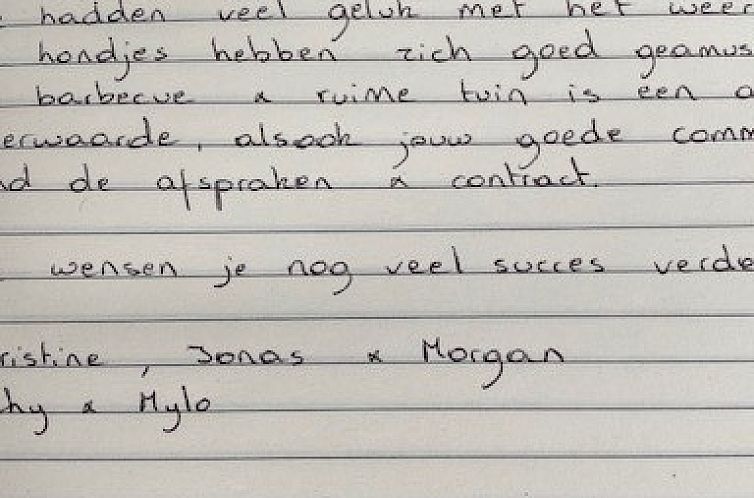 hadden veel geluk met het weer
hondjes hebben zich goed geamus
barbecue & ruime tuin is een
erwaarde, alsook jouw goede comm
de afspraken & contract.
wensen je nog veel succes verde
ristine, Jonas & Morgan
hy & Mylo